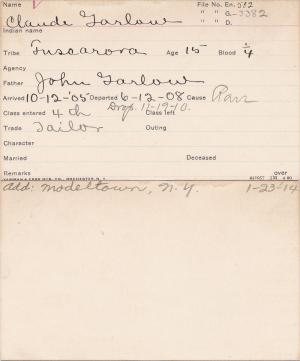 Name File No. En. 582
Claude Garlow " " G-3382
Indian name " " D.
Tribe Tuscarora Age 15 Blood 4/4
Agency
Father John Garlow
Arrived 10-12-'05 Departed 6-12-08 Cause Ran
Drop. 11-19-10.
Class entered 4th Class left
Trade Tailor Outing
Character
Married Deceased
Remarks over
Add: Modeltown, N.Y. 1-23-14